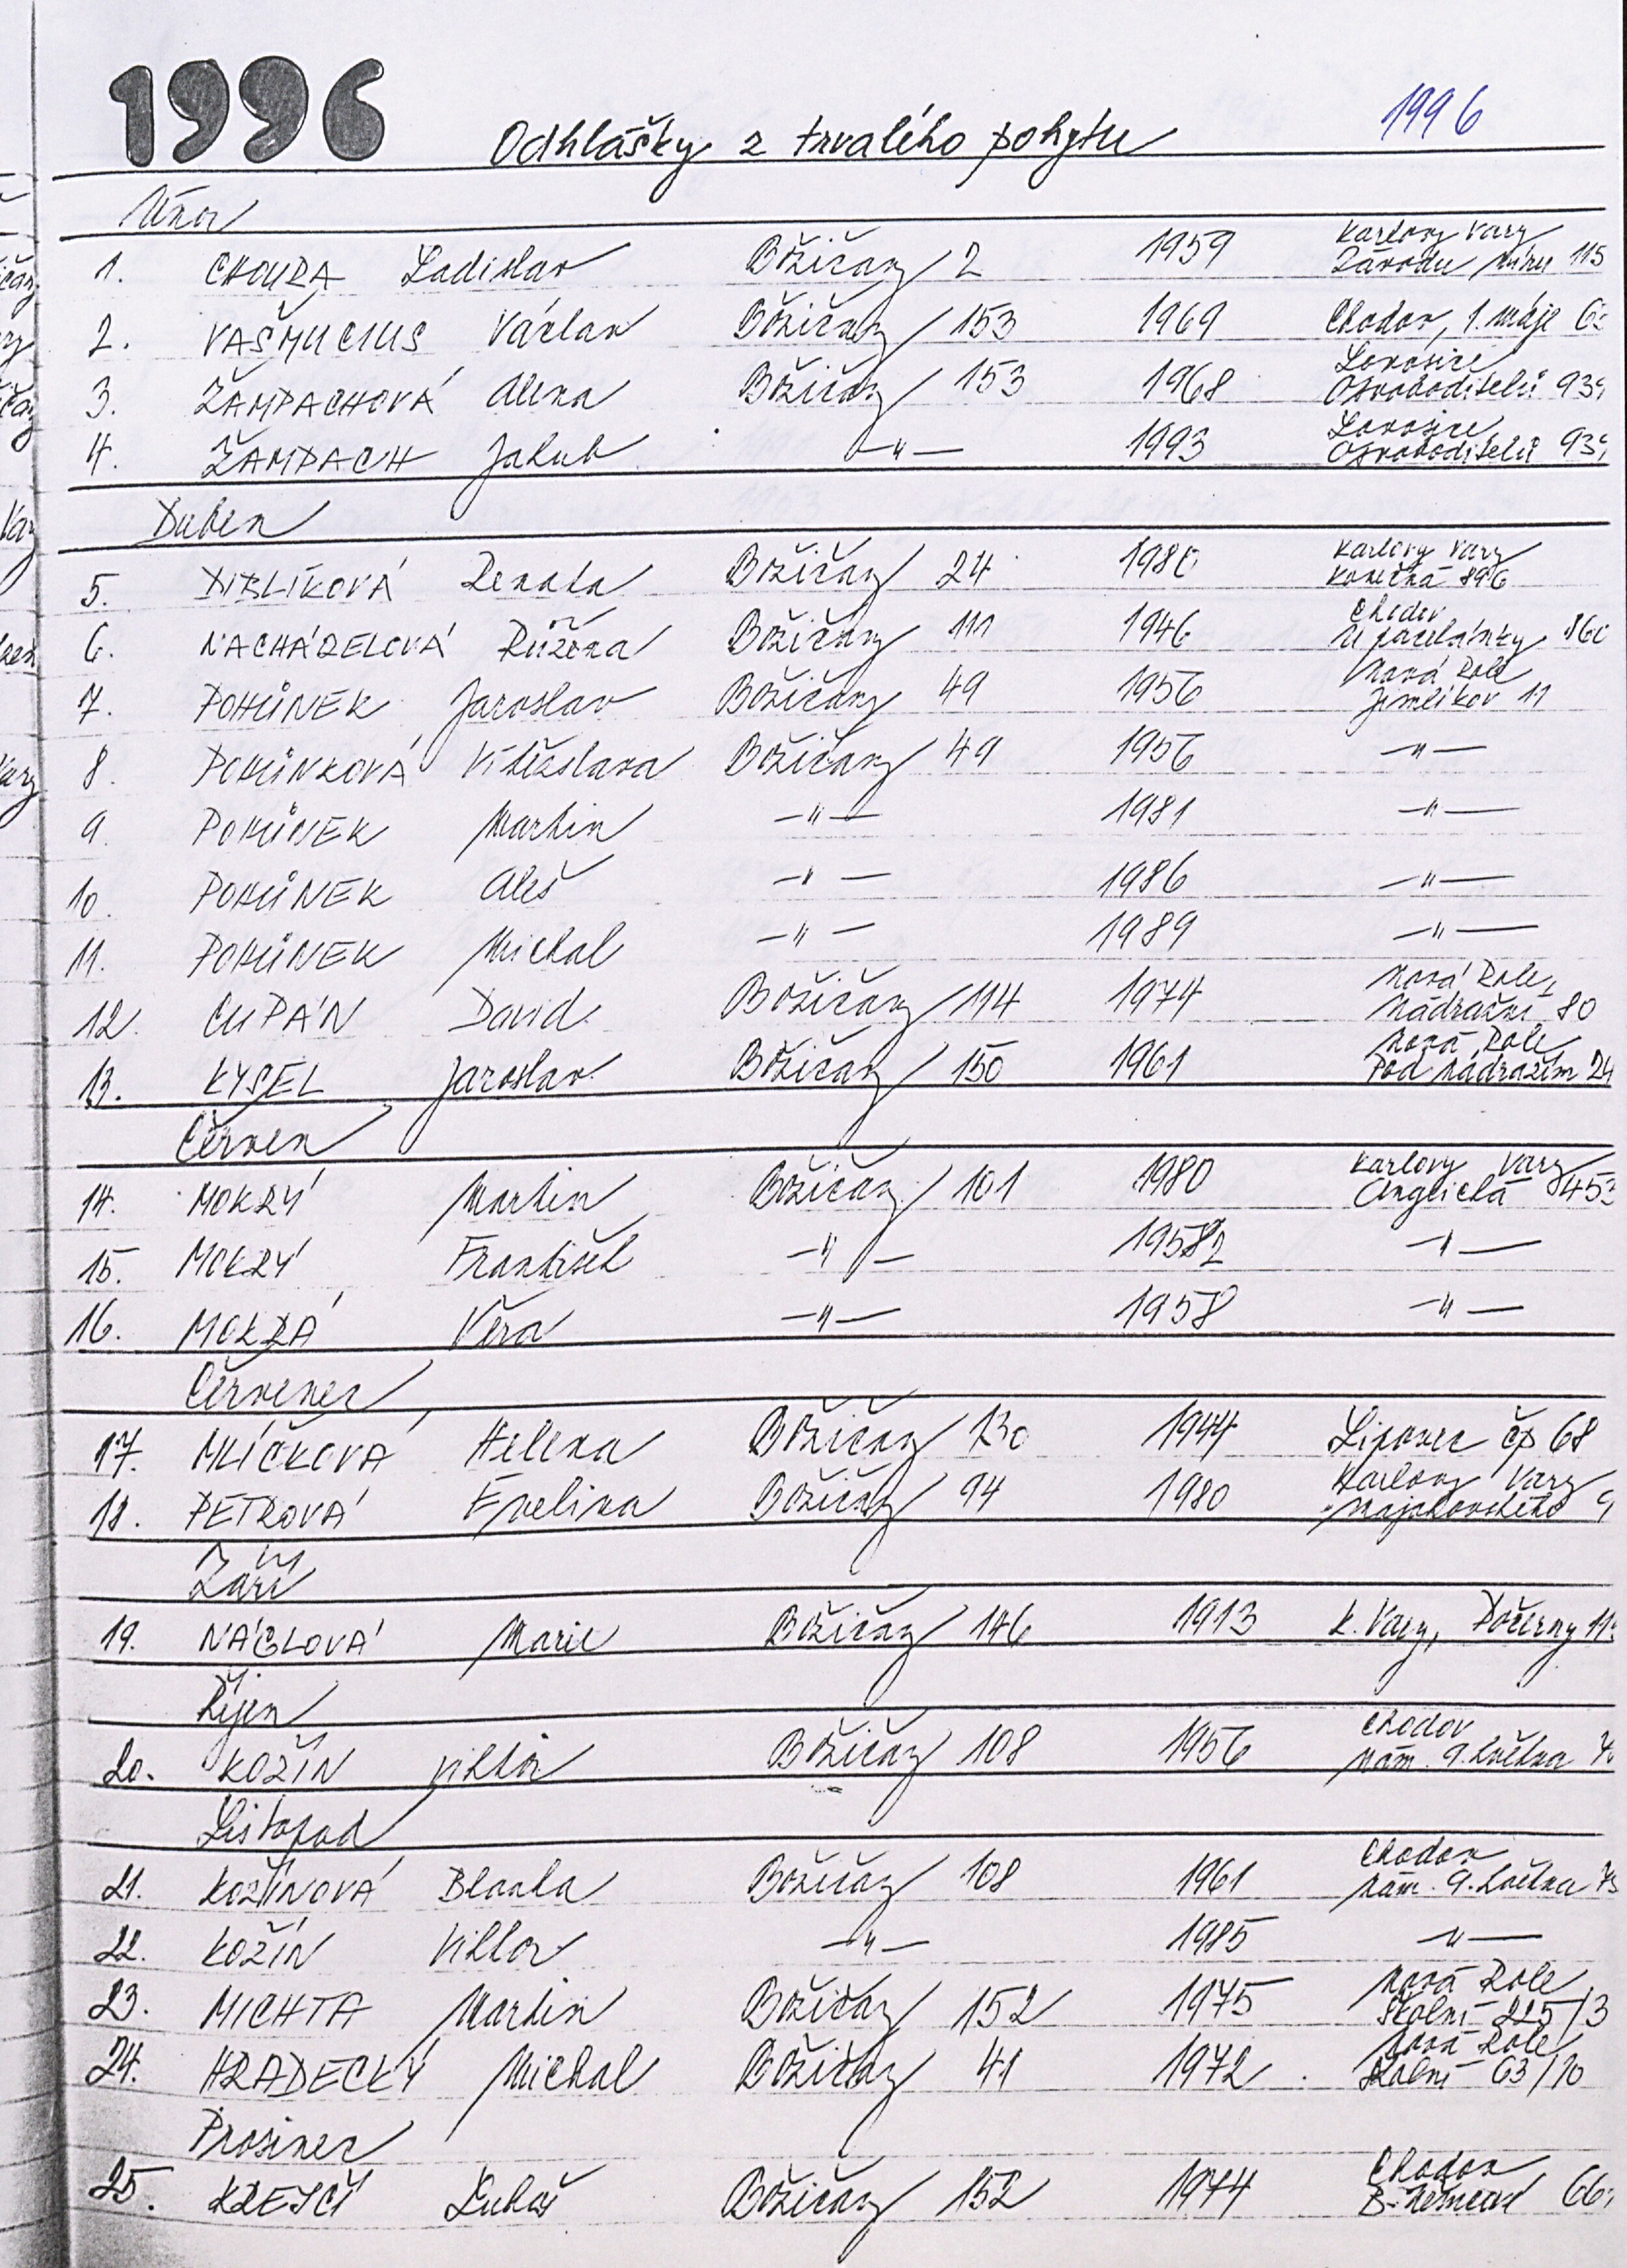 1996
Odhlášky z trvalého pobytu 1996
Únor
1. CHOURA Ladislav Božičany 2 1959 Karlovy Vary
Závodu míru 115
2. VAŠMUCIUS Václav Božičany 153 1969 Chodov, 1. máje
3. ŽAMPACHOVÁ Alena Božičany 153 1968 Lovosice
Osvoboditelů
4. ŽAMPACH Jakub —"— 1993 Lovosice
Osvoboditelů
Duben
5. DIBLÍKOVÁ Renata Božičany 24 1980 Karlovy Vary
Konečná 896
6. NACHÁZELOVÁ Růžena Božičany 111 1946 Chodov
U porcelánky
7. POHŮNEK Jaroslav Božičany 49 1956 Nová Role
Jimlíkov 11
8. POHŮNKOVÁ Vítězslava Božičany 49 1956 —"—
9. POHŮNEK Martin —"— 1981 —"—
10. POHŮNEK Aleš —"— 1986 —"—
11. POHŮNEK Michal —"— 1989 —"—
12. CUPÁN David Božičany 114 1974 Nová Role,
Nádražní 80
13. KYSEL Jaroslav Božičany 150 1961 Nová Role
Pod nádražím 24
Červen
14. MOKRÝ Martin Božičany 101 1980 Karlovy Vary
Anglická
15. MOKRÝ František —"— —"—
16. MOKRÁ Věra —"— 1958 —"—
Červenec
17. MLÍČKOVÁ Helena Božičany 130 1944 Lipovec čp 68
18. PETROVÁ Evelina Božičany 94 1980 Karlovy Vary
Majakovského
Září
19. NÁGLOVÁ Marie Božičany 146 1913 K. Vary, Počerny
Říjen
20. KOŽÍN Viktor Božičany 108 1956 Chodov
nám. 9. května
Listopad
21. KOŽÍNOVÁ Blanka Božičany 108 1961 Chodov
nám. 9. května
22. KOŽÍN Viktor —"— 1985 —"—
23. MICHTA Martin Božičany 152 1975 Nová Role
Školní 225/3
24. HRADECKÝ Michal Božičany 41 1972 Nová Role
Školní 63/10
Prosinec
25. KREJČÍ Lukáš Božičany 152 1974 Chodov
B. Němcové